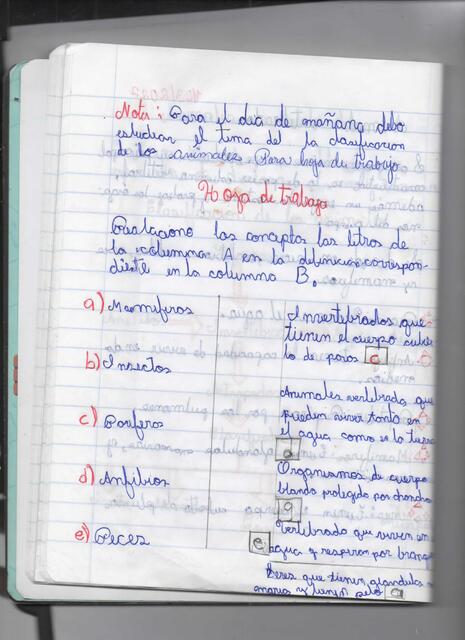 Nota: Para el dia de mañana debo
estudiar el tema del la clasificacion
de los animales. Para hoja de trabajo.
Hoja de trabajo
Relaciono los conceptos las litros de
la columna A en la definicion correspon-
diente en la columna B.
a) Mamiferos
Invertebrados que
tienen el cuerpo cubier
to de poros c
b) Insectos
Animales vertebrado que
pueden vivir tanto en
el agua como es la tierra
c) Porferos
Organismos de cuerpo
blando protegido por
d) Anfibios
g
Vertebrado que viven en
e agua y respiran por branq
e) Peces
Seres que tienen glandulas
marias y tienen pelo a